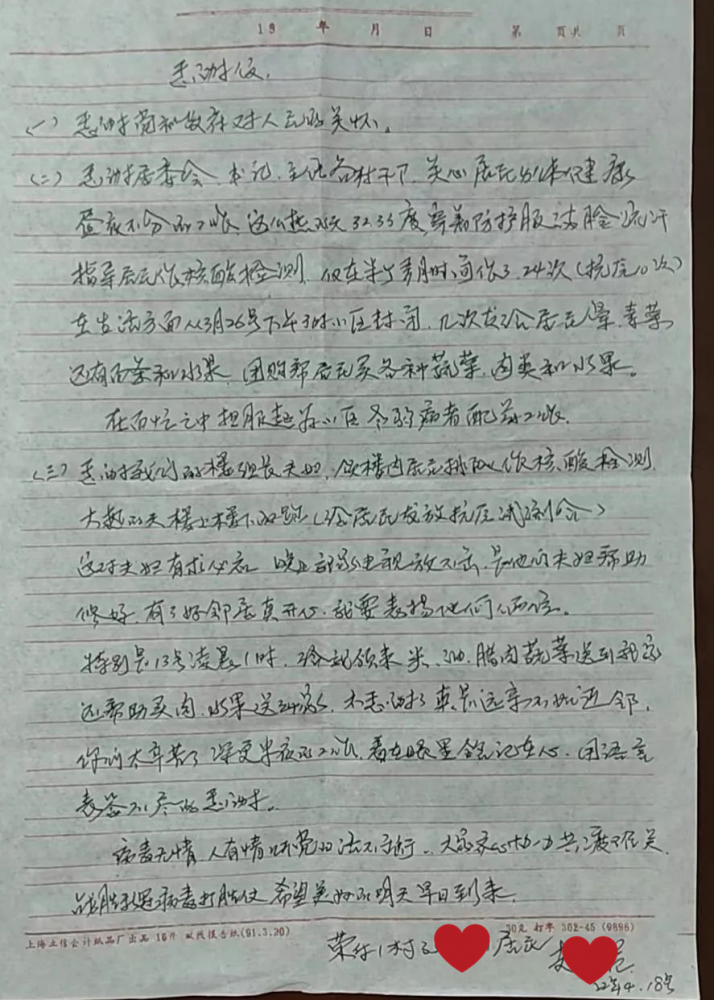 19 年 月 日 第 页共 页
感谢信
(一) 感谢党和政府对人民的关怀。
(二) 感谢居委会、书记、主任各村干下,关心居民身体健康
昼夜不分的工作,这么热的天32.33度,穿着防护服,满脸流汗
指导居民作核酸检测,仅在半个多月时间作了24次(抗原10次)
在生活方面从3月26号下午3时小区封闭,几次发给居民蛋、青菜
还有面条和水果,团购帮居民买各种蔬菜、肉类和水果。
在百忙之中担服起为小区 病者配药工作。
(三) 感谢我们的楼组长夫妇,使楼内居民排队作核酸检测
大热的天楼上楼下的跑(给居民发放抗原试剂合)
这对夫妇有求必应,晚上我家电视放不出,是他们夫妇帮助
修好,有了好邻居真开心,我要表扬他们俩位。
特别是13号凌晨1时,给我领来米、油、腊肉蔬菜送到我家
还帮助买肉、水果送到我家,太感谢了真是远亲不如近邻,
你们太辛苦了深更半夜的工作,看在眼里铭记在心,用语言
表答不尽的感谢。
病毒无情,人有情 大家齐心协力共渡难关
战胜新冠病毒打胜仗,希望美好的明天早日到来。
上海立信会计纸品厂出品 16开 双线报告纸(91.3.20) 30克 打字 302-45 (9896)
荣华1村 居民
22年4.18号